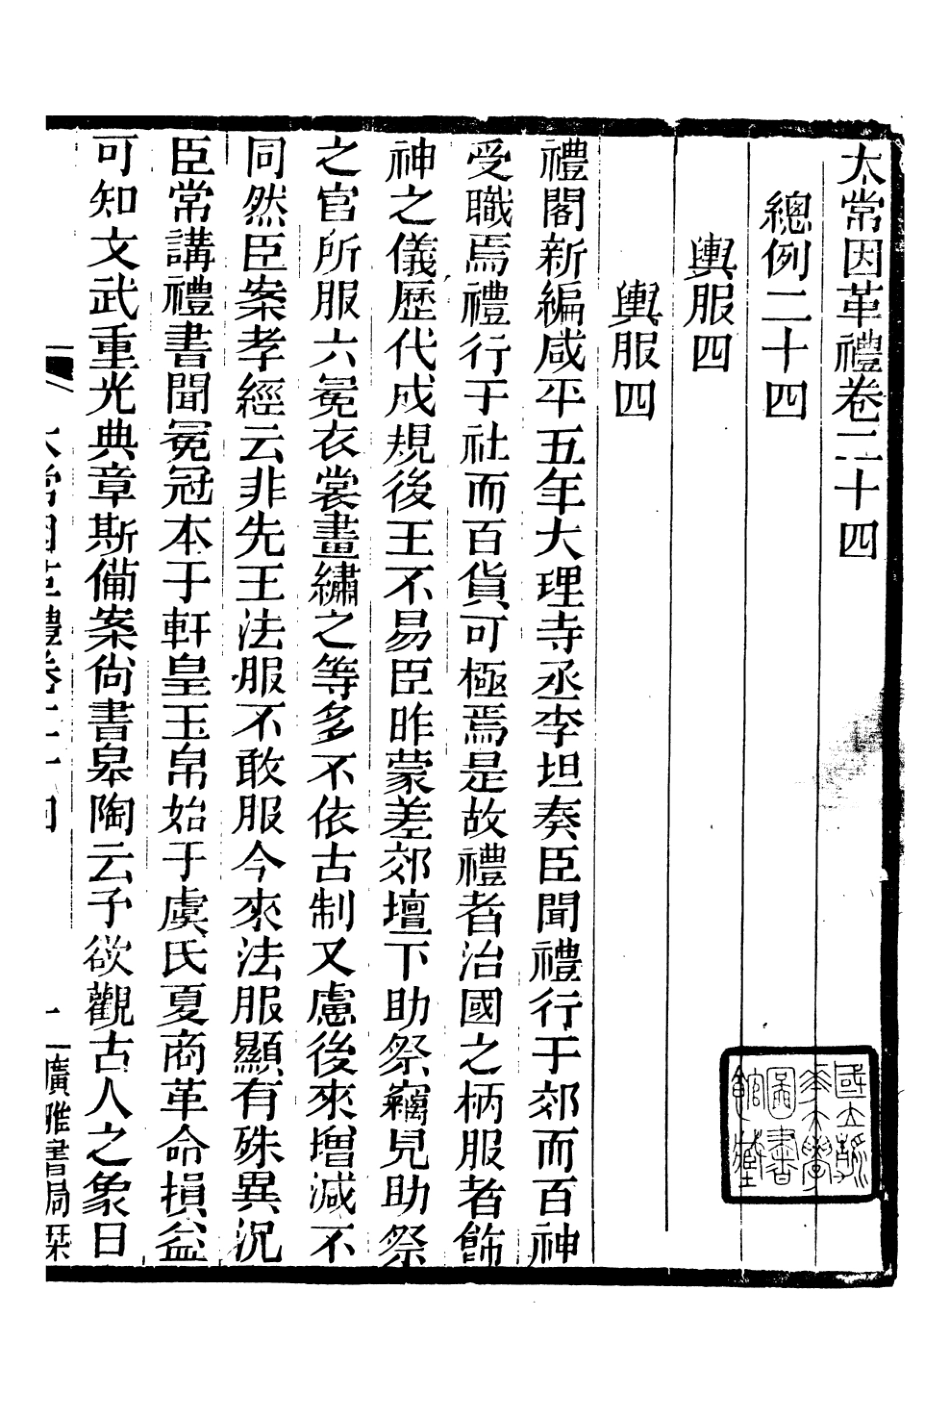 太常因革禮卷二十四
總例二十四
輿服四
輿服四
禮閣新編咸平五年大理寺丞李坦奏臣聞禮行于郊而百神
受職焉禮行于社而百貨可極焉是故禮者治國之柄服者飾
神之儀歷代成規後王不易臣昨蒙差郊壇下助祭竊見助祭
之官所服六冕衣裳畫繡之等多不依古制又慮後來增減不
同然臣案孝經云非先王法服不敢服今來法服顯有殊異況
臣常講禮書聞冕冠本于軒皇玉帛始于虞氏夏商革命損益
可知文武重光典章斯備案尙書皋陶云予欲觀古人之象日
太常因革禮卷二十四 一 廣雅書局栞
國立清華大學圖書館藏